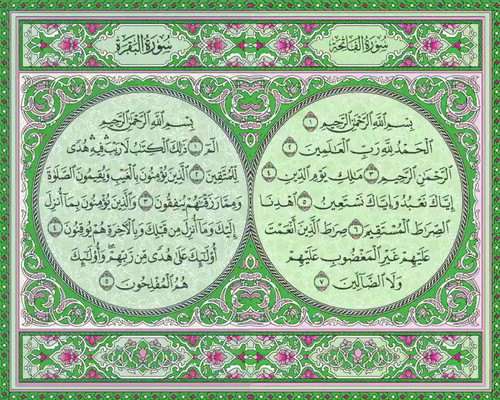 سُورَةُ الفَاتِحَة
بِسْمِ ٱللَّهِ ٱلرَّحْمَٰنِ ٱلرَّحِيمِ ١
ٱلْحَمْدُ لِلَّهِ رَبِّ ٱلْعَٰلَمِينَ ٢
ٱلرَّحْمَٰنِ ٱلرَّحِيمِ ٣ مَٰلِكِ يَوْمِ ٱلدِّينِ ٤
إِيَّاكَ نَعْبُدُ وَإِيَّاكَ نَسْتَعِينُ ٥ ٱهْدِنَا
ٱلصِّرَٰطَ ٱلْمُسْتَقِيمَ ٦ صِرَٰطَ ٱلَّذِينَ أَنْعَمْتَ
عَلَيْهِمْ غَيْرِ ٱلْمَغْضُوبِ عَلَيْهِمْ
وَلَا ٱلضَّآلِّينَ ٧
سُورَةُ البَقَرَة
بِسْمِ ٱللَّهِ ٱلرَّحْمَٰنِ ٱلرَّحِيمِ
الٓمٓ ١ ذَٰلِكَ ٱلْكِتَٰبُ لَا رَيْبَ ۛ فِيهِ ۛ هُدًى
لِّلْمُتَّقِينَ ٢ ٱلَّذِينَ يُؤْمِنُونَ بِٱلْغَيْبِ وَيُقِيمُونَ ٱلصَّلَوٰةَ
وَمِمَّا رَزَقْنَٰهُمْ يُنفِقُونَ ٣ وَٱلَّذِينَ يُؤْمِنُونَ بِمَآ أُنزِلَ
إِلَيْكَ وَمَآ أُنزِلَ مِن قَبْلِكَ وَبِٱلْءَاخِرَةِ هُمْ يُوقِنُونَ ٤
أُو۟لَٰٓئِكَ عَلَىٰ هُدًى مِّن رَّبِّهِمْ ۖ وَأُو۟لَٰٓئِكَ
هُمُ ٱلْمُفْلِحُونَ ٥